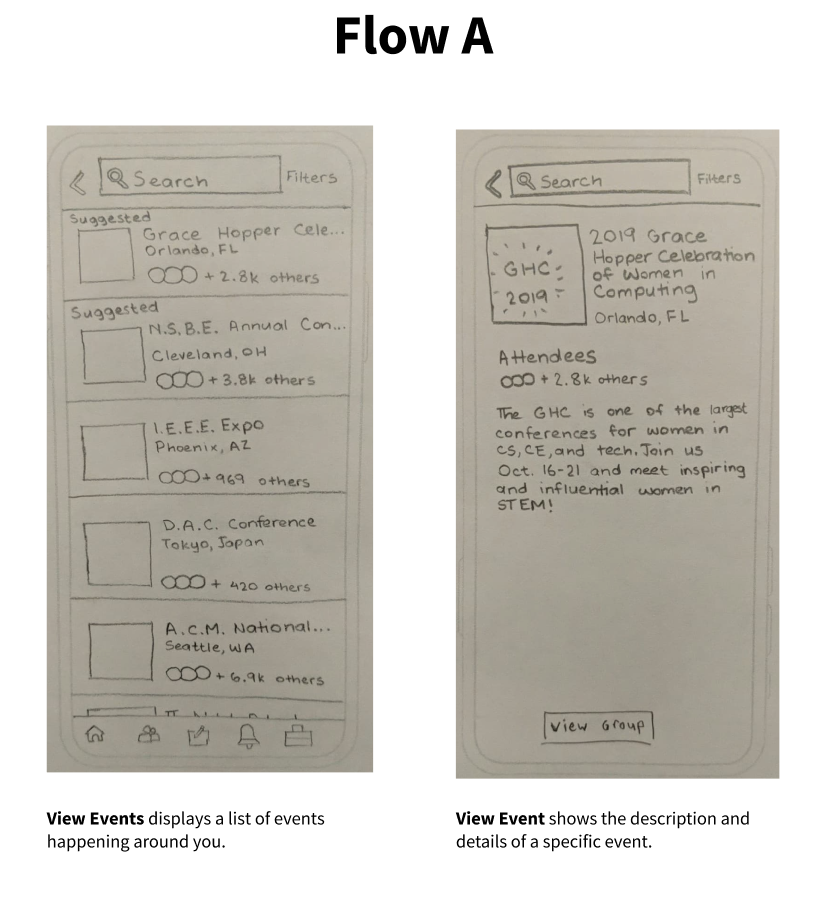 Flow A
Search
Filters
Suggested
Grace Hopper Cele...
Orlando, FL
+ 2.8k others
Suggested
N.S.B.E. Annual Con...
Cleveland, OH
+ 3.8k others
I.E.E.E. Expo
Phoenix, AZ
+ 969 others
D.A.C. Conference
Tokyo, Japan
+ 420 others
A.C.M. National...
Seattle, WA
+ 6.9k others
View Events displays a list of events
happening around you.
Search
Filters
GHC
2019
2019 Grace
Hopper Celebration
of Women in
Computing
Orlando, FL
Attendees
+ 2.8k others
The GHC is one of the largest
conferences for women in
CS, CE, and tech. Join us
Oct. 16-21 and meet inspiring
and influential women in
STEM!
View Group
View Event shows the description and
details of a specific event.